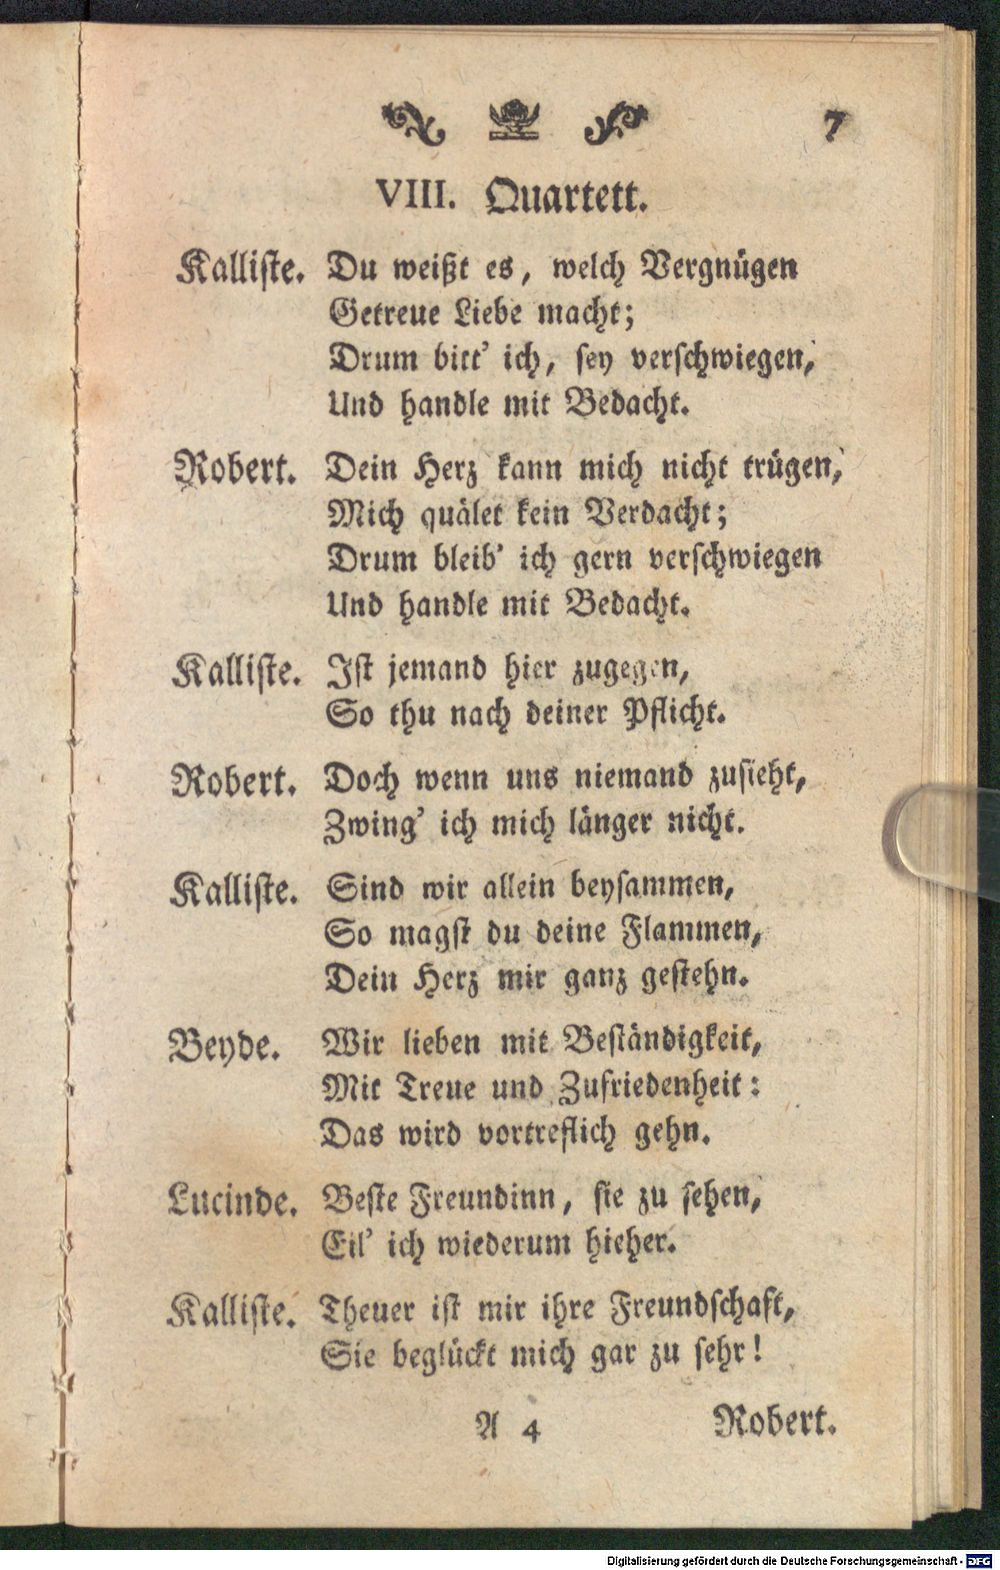 7
VIII. Quartett.
Kalliste. Du weißt es, welch Vergnügen
Getreue Liebe macht;
Drum bitt' ich, sey verschwiegen,
Und handle mit Bedacht.
Robert. Dein Herz kann mich nicht trügen,
Mich quälet kein Verdacht;
Drum bleib' ich gern verschwiegen
Und handle mit Bedacht.
Kalliste. Ist jemand hier zugegen,
So thu nach deiner Pflicht.
Robert. Doch wenn uns niemand zusieht,
Zwing' ich mich länger nicht.
Kalliste. Sind wir allein beysammen,
So magst du deine Flammen,
Dein Herz mir ganz gestehn.
Beyde. Wir lieben mit Beständigkeit,
Mit Treue und Zufriedenheit:
Das wird vortreflich gehn.
Lucinde. Beste Freundinn, sie zu sehen,
Eil' ich wiederum hieher.
Kalliste. Theuer ist mir ihre Freundschaft,
Sie beglückt mich gar zu sehr!
A 4 Robert.
Digitalisierung gefördert durch die Deutsche Forschungsgemeinschaft - DFG